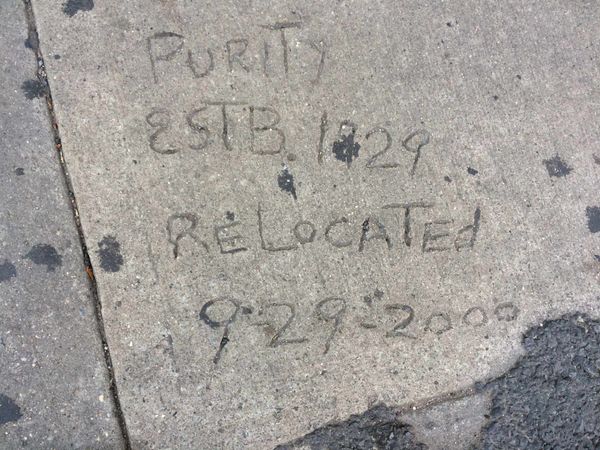 PURITY
ESTB. 1929
RELOCATEd
9-29-2000